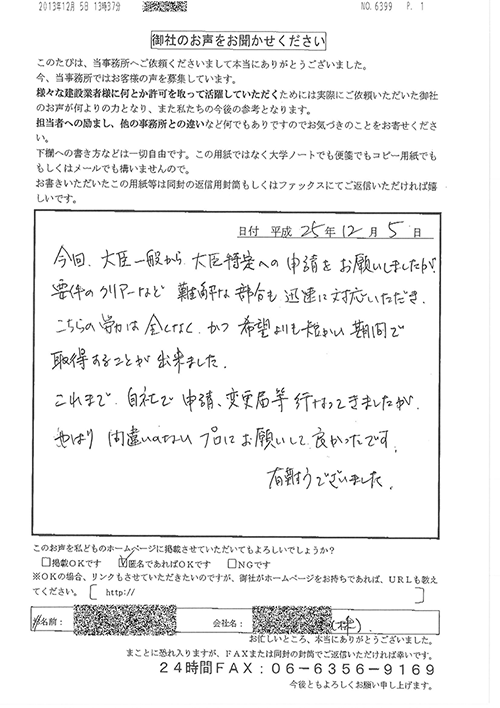 2013年12月 5日 13時37分 NO. 6399 P. 1
御社のお声をお聞かせください
このたびは、当事務所へご依頼くださいまして本当にありがとうございました。
今、当事務所ではお客様の声を募集しています。
様々な建設業者様に何とか許可を取って活躍していただくためには実際にご依頼いただいた御社
のお声が何よりの力となり、また私たちの今後の参考となります。
担当者への励まし、他の事務所との違いなど何でもありですのでお気づきのことをお寄せくださ
い。
下欄への書き方などは一切自由です。この用紙ではなく大学ノートでも便箋でもコピー用紙でも
もしくはメールでも構いませんので。
お書きいただいたこの用紙等は同封の返信用封筒もしくはファックスにてご返信いただければ嬉
しいです。
日付 平成 25年 12月 5日
今回、大臣一般から 大臣特定への 申請を お願いしましたが、
要件のクリアーなど 難解な部分も 迅速に対応いただき、
こちらの労力は 全くなく、かつ 希望よりも短かい 期間で
取得することが 出来ました。
これまで、自社で 申請、変更届等 行なってきましたが、
やはり 間違いのない プロにお願いして 良かったです。
有難うございました。
このお声を私どものホームページに掲載させていただいてもよろしいでしょうか?
□掲載OKです ☑匿名であればOKです □NGです
※OKの場合、リンクもさせていただきたいのですが、御社がホームページをお持ちであれば、URLも教え
てください。 [ http:// ]
お名前: 会社名: (株)
お忙しいところ、本当にありがとうございました。
まことに恐れ入りますが、FAXまたは同封の封筒でご返信いただければ幸いです。
24時間FAX:06-6356-9169
今後ともよろしくお願い申し上げます。